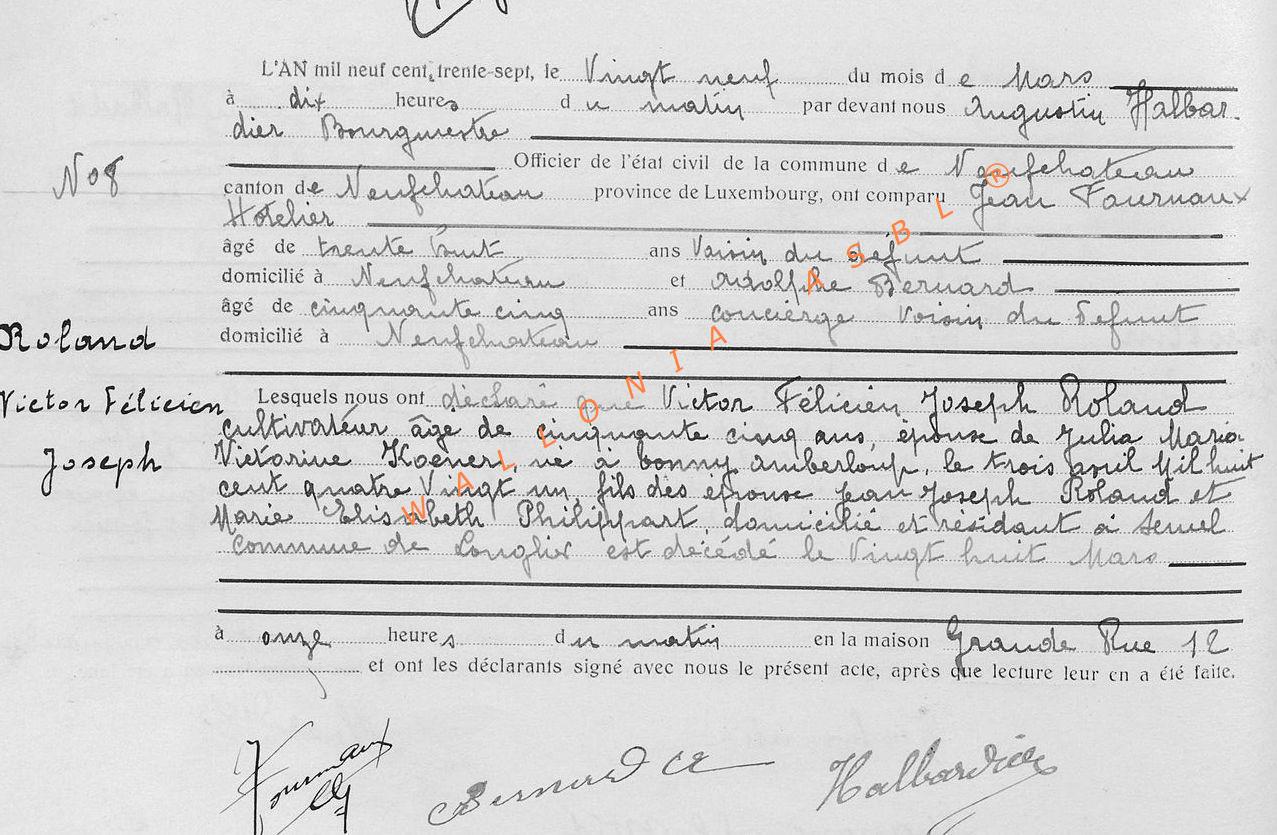 L'AN mil neuf cent trente-sept, le Vingt neuf du mois de Mars
à dix heures du matin par devant nous Augustin Halbar-
dier Bourgmestre
Officier de l'état civil de la commune de Neufchateau
No 8
canton de Neufchateau province de Luxembourg, ont comparu Jean Fournaux
Hotelier
âgé de trente huit ans Voisin du défunt
domicilié à Neufchateau et Adolphe Bernard
âgé de cinquante cinq ans concierge Voisin du defunt
Roland
domicilié à Neufchateau
Victor Félicien
Joseph
Lesquels nous ont déclaré que Victor Félicien Joseph Roland
cultivateur âge de cinquante cinq ans, épouse de Julia Maria
Victorine né à bonny amberloup, le trois avril Mil huit
cent quatre Vingt un, fils des épouse Jean Joseph Roland et
Marie Elisabeth Philippart domicilié et résidant à Semel
commune de Longlier est décédé le Vingt huit Mars
à onze heures du matin en la maison Grande Rue 12
et ont les déclarants signé avec nous le présent acte, après que lecture leur en a été faite.
Fournaux
Bernard
Halbardier
WALLONIA ASBL ®